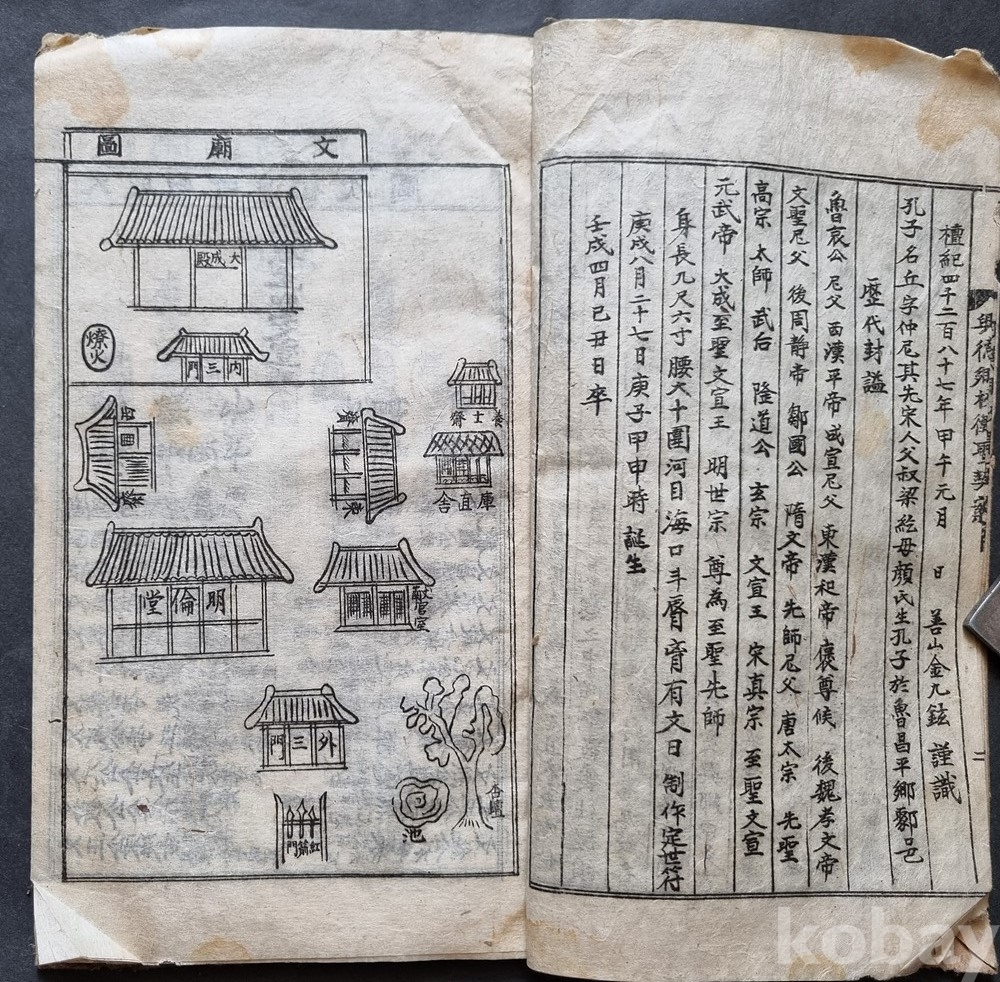 檀紀四千二百八十七年甲午元月 日 善山金九鉉 謹識
孔子名丘字仲尼其先宋人父叔梁紇母顔氏生孔子於魯昌平鄉鄹邑
歷代封謚
魯哀公 尼父 西漢平帝 成宣尼父 東漢和帝 褒尊候 後魏孝文帝
文聖尼父 後周静帝 鄒國公 隋文帝 先師尼父 唐太宗 先聖
高宗 太師 武后 隆道公 玄宗 文宣王 宋真宗 至聖文宣
元武帝 大成至聖文宣王 明世宗 尊為至聖先師
身長九尺六寸腰大十圍河目海口斗唇 有文曰 制作定世符
庚戌八月二十七日庚子甲申時誕生
壬戌四月己丑日卒
二
文廟圖
大成殿
燎火
內三門
養士齋
庫直舍
東齋
明倫堂
獻官室
外三門
杏壇
池
紅箭門
kobay